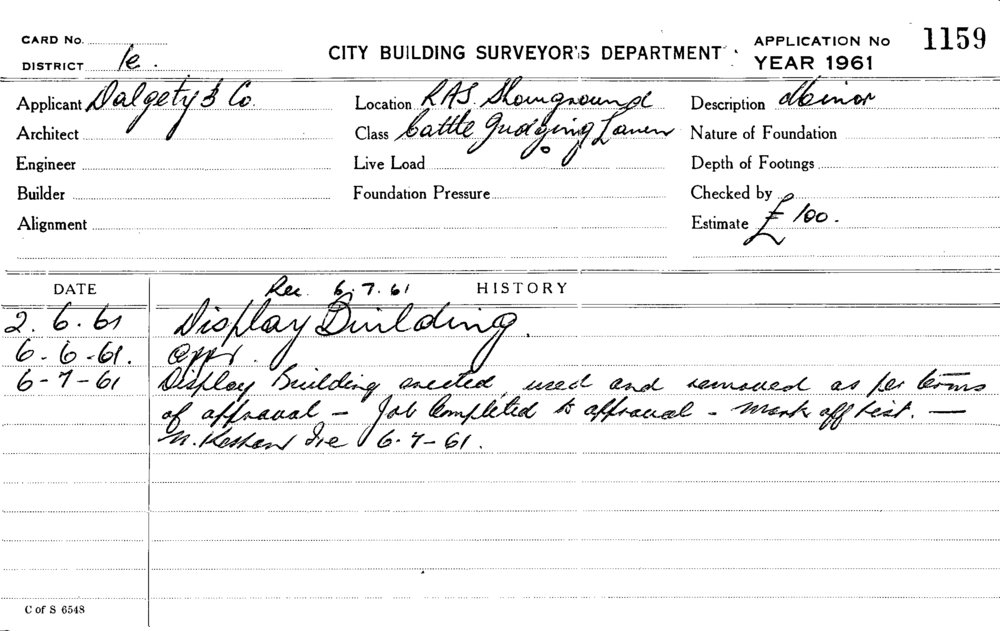 CARD No.
DISTRICT 1e.
CITY BUILDING SURVEYOR'S DEPARTMENT
APPLICATION No 1159
YEAR 1961
Applicant Dalgety & Co.
Location R.A.S. Showground
Description Minor
Architect
Class Cattle Judging Lawn
Nature of Foundation
Engineer
Live Load
Depth of Footings
Builder
Foundation Pressure
Checked by
Alignment
Estimate £100.
DATE
Rec. 6.7.61 HISTORY
2.6.61 Display Building.
6-6-61. appr.
6-7-61 Display Building erected, used and removed as per terms
of approval - Job Completed to approval - mark off list. —
6-7-61.
C of S 6548